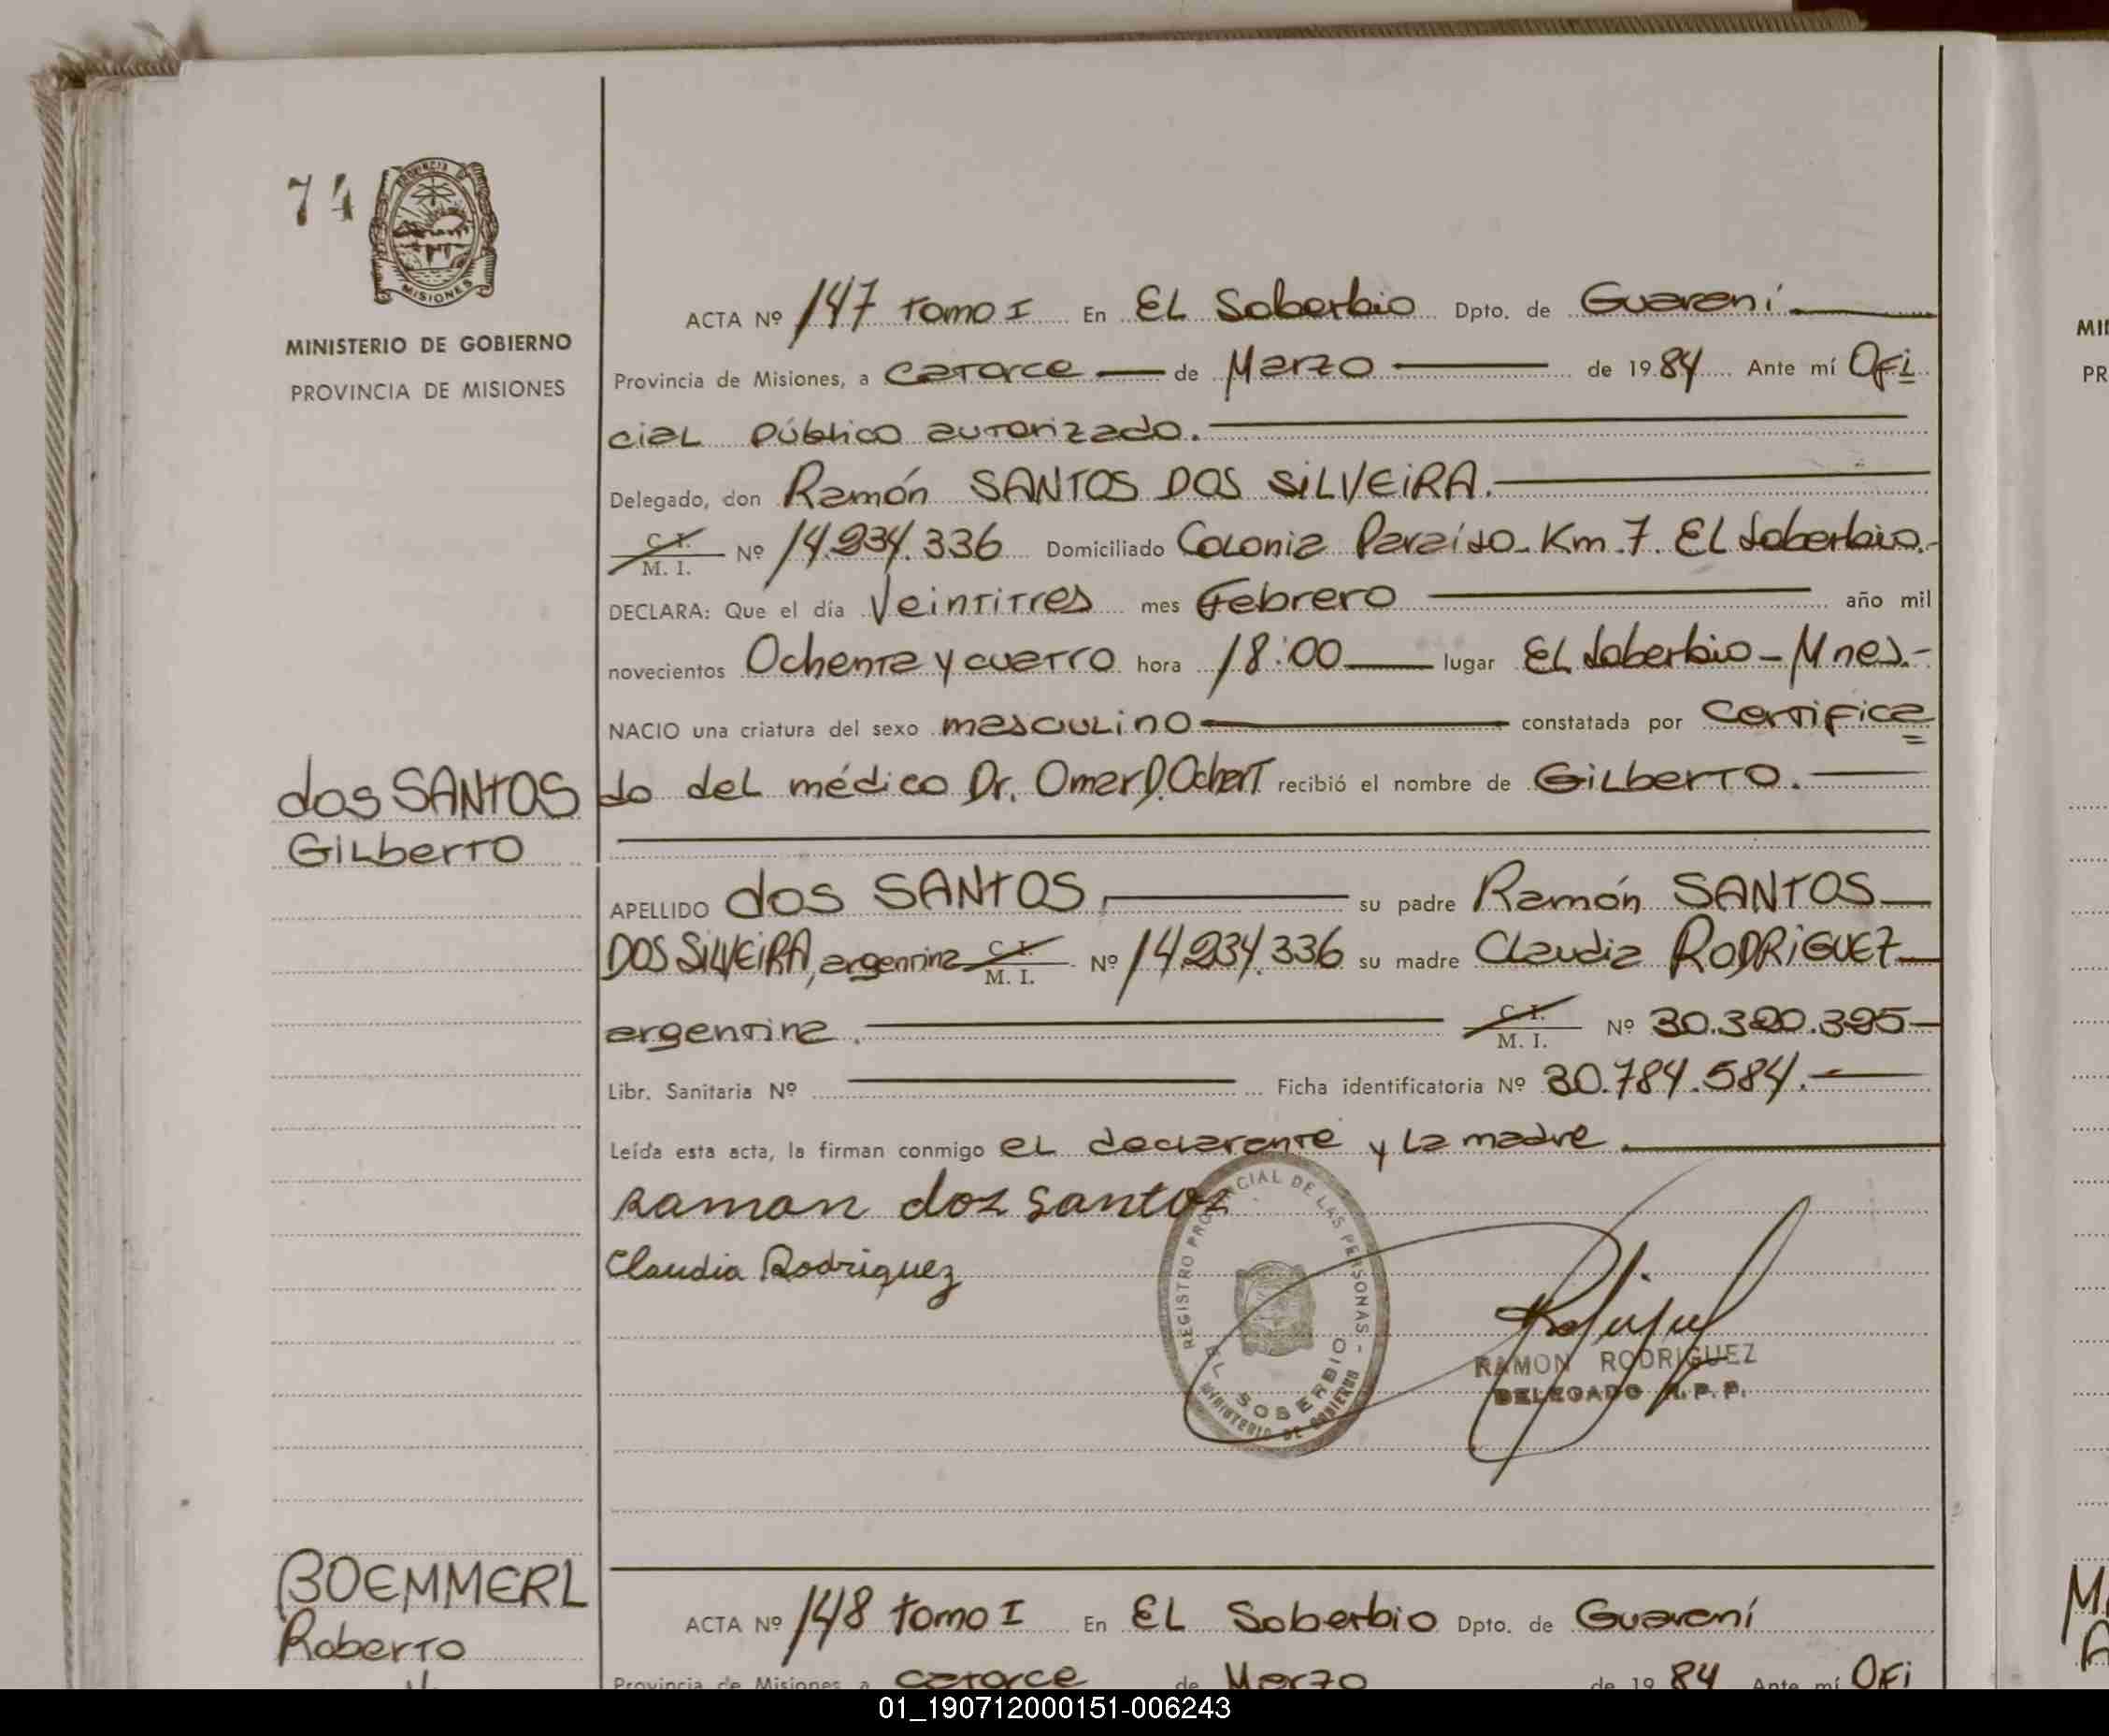 74
PROVINCIA
MISIONES
MINISTERIO DE GOBIERNO
PROVINCIA DE MISIONES
ACTA Nº 147 Tomo I En EL Soberbio Dpto. de Guaraní
Provincia de Misiones, a catorce de Marzo de 1984 Ante mí Ofi
cial Público autorizado.
Delegado, don Ramón SANTOS DOS SILVEIRA.
C. I. M. I. Nº 14.934.336 Domiciliado Colonia Paraíso - Km 7. El Soberbio.-
DECLARA: Que el día Veintitres mes Febrero año mil
novecientos Ochenta y cuatro hora 18:00 lugar El Soberbio - Mnes.-
NACIO una criatura del sexo masculino constatada por Certifica
do del médico Dr. Omar D. Ochert recibió el nombre de Gilberto.
dos SANTOS
Gilberto
APELLIDO dos SANTOS, su padre Ramón SANTOS
DOS SILVEIRA, argentina C. I. M. I. Nº 14.934.336 su madre Claudia RODRIGUEZ
argentina. C. I. M. I. Nº 30.390.395
Libr. Sanitaria Nº Ficha identificatoria Nº 30.784.584.
Leída esta acta, la firman conmigo el declarante y la madre.
Ramon dos santos
Claudia Rodriguez
REGISTRO PROVINCIAL DE LAS PERSONAS -
EL SOBERBIO
MINISTERIO DE GOBIERNO
RAMON RODRIGUEZ
DELEGADO R.P.P.
BOEMMERL
Roberto
ACTA Nº 148 Tomo I En EL Soberbio Dpto. de Guaraní
Provincia de Misiones a catorce de Marzo de 1984 Ante mí Ofi
MI
PR
M
A
01_190712000151-006243